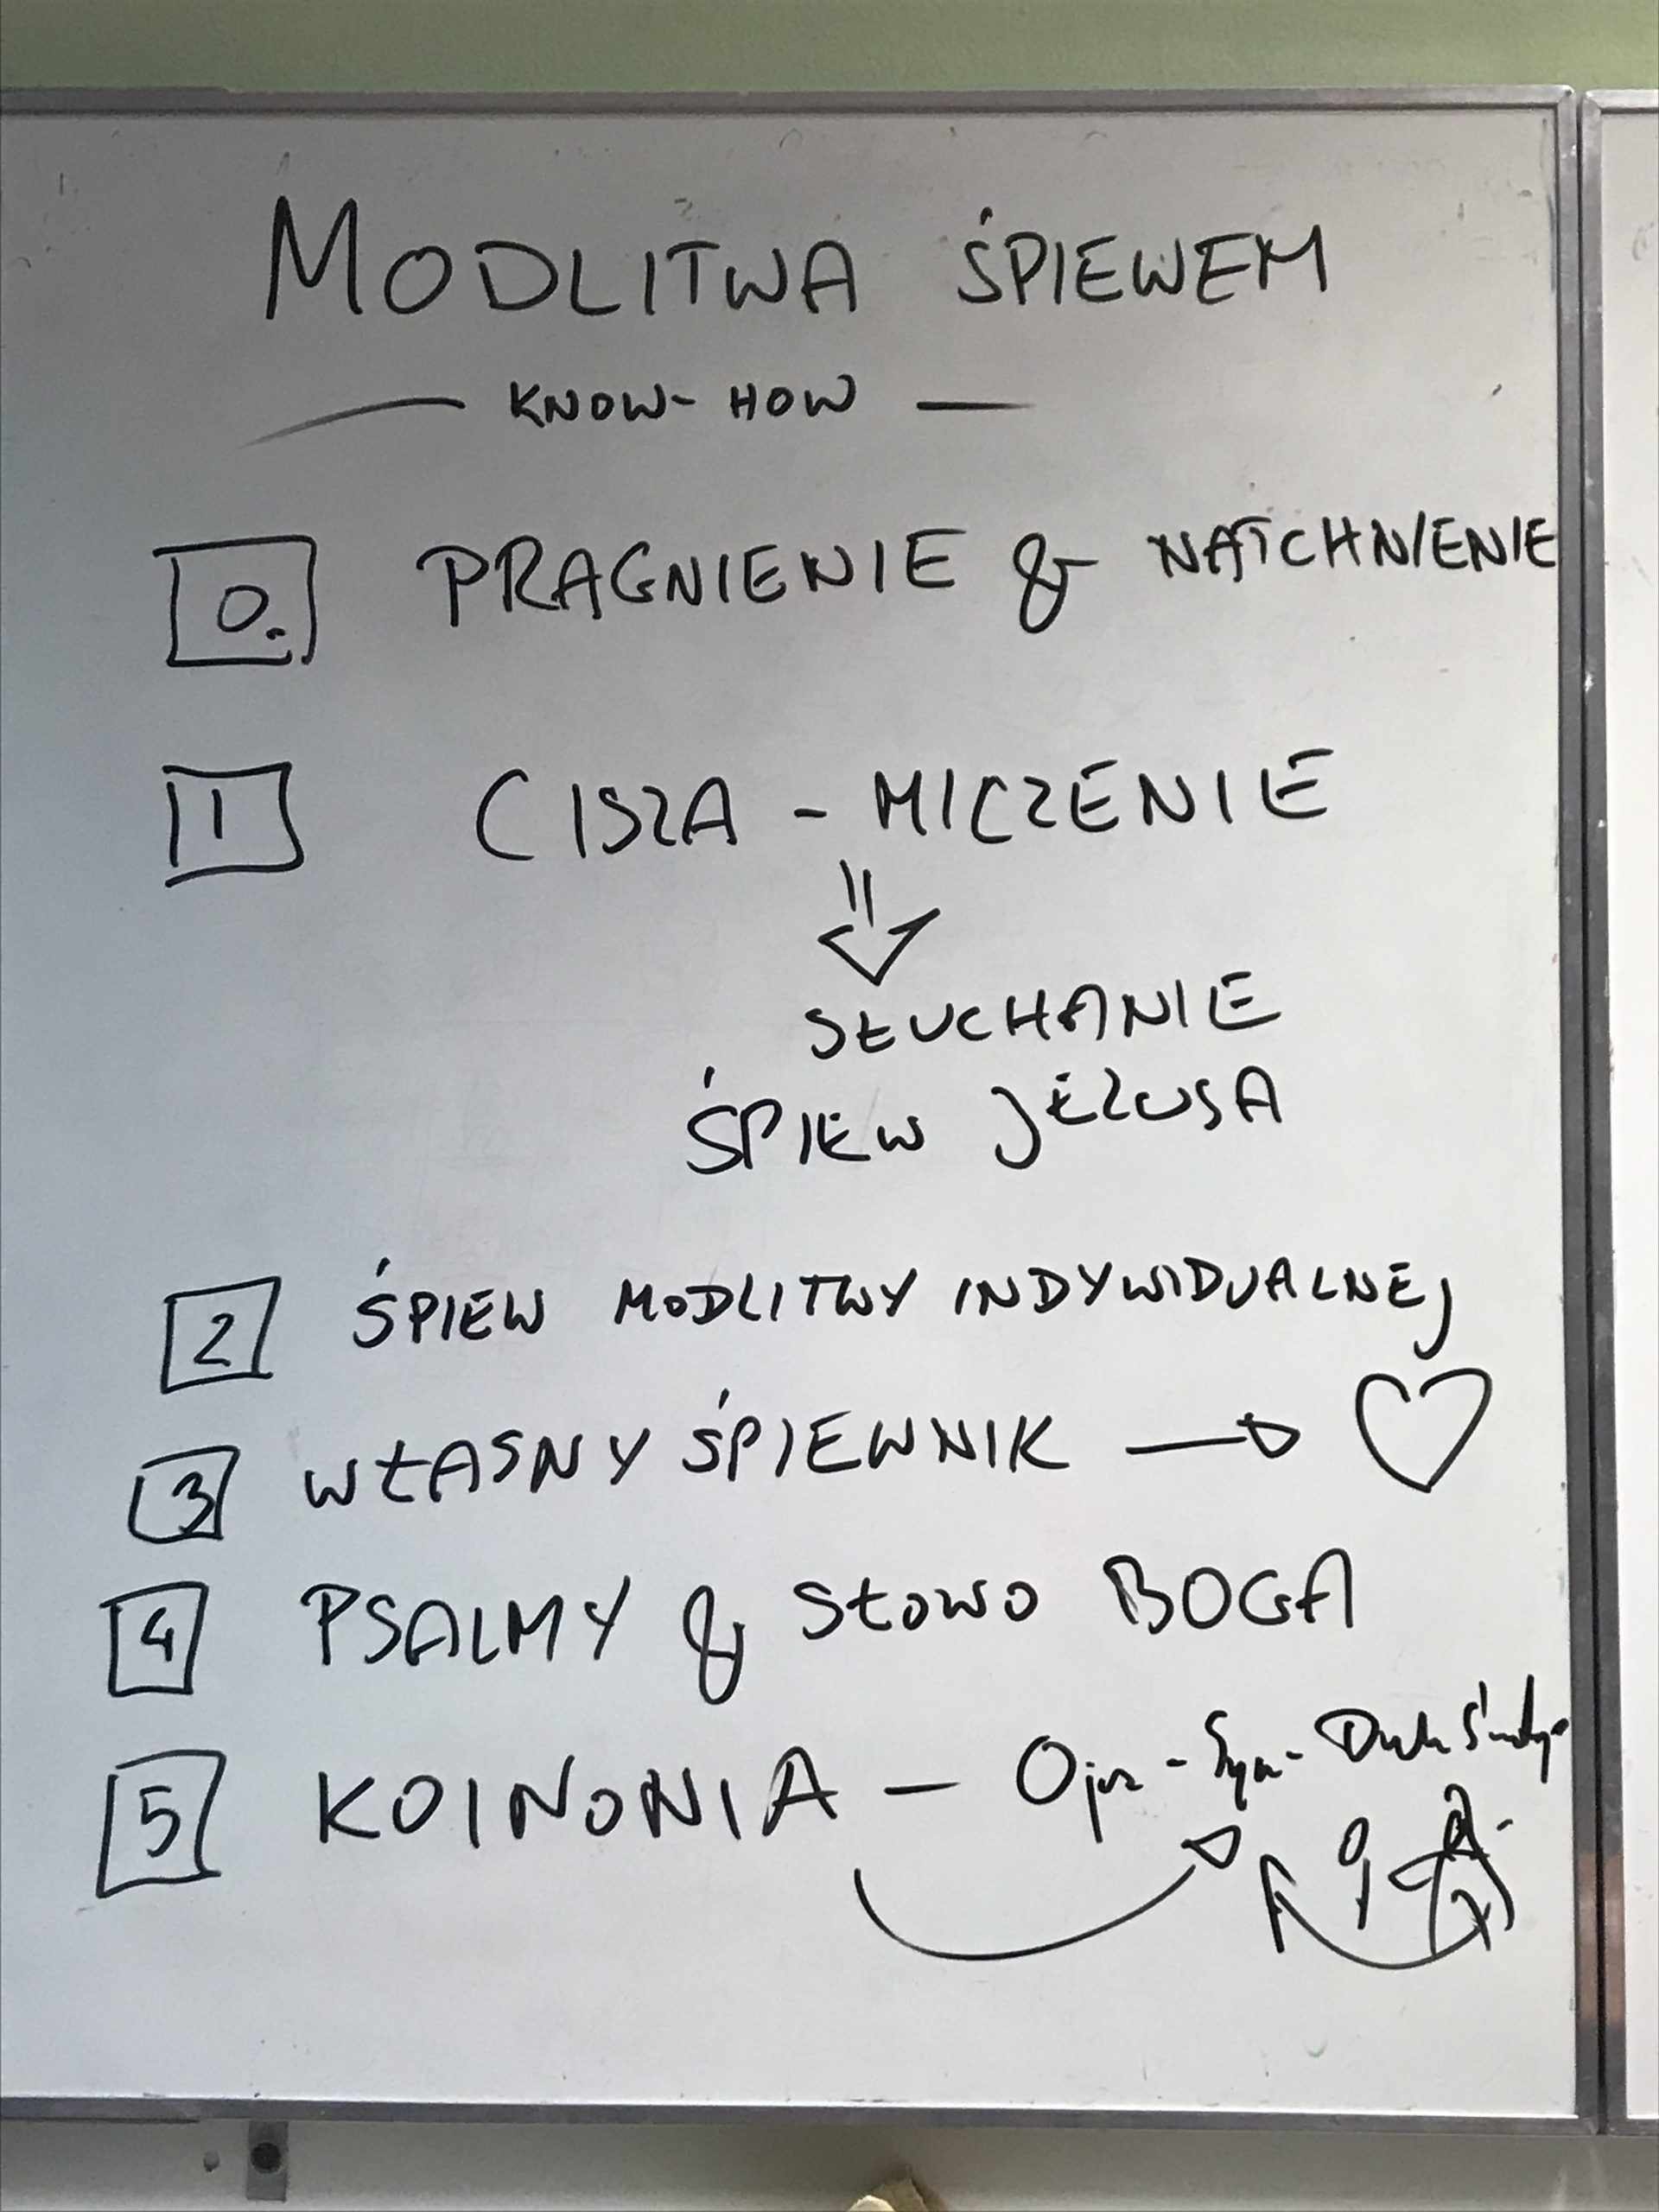 MODLITWA ŚPIEWEM
— KNOW-HOW —
0. PRAGNIENIE & NATCHNIENIE
1 CISZA - MILCZENIE
SŁUCHANIE
ŚPIEW JEZUSA
2 ŚPIEW MODLITWY INDYWIDUALNEJ
3 WŁASNY ŚPIEWNIK
4 PSALMY & SŁOWO BOGA
5 KOINONIA — Ojciec - Syn - Duch Święty